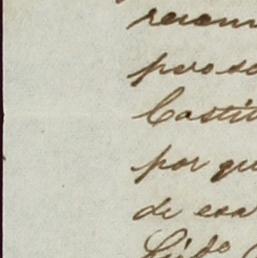 recom
pero so
Castil
por qu
de esa